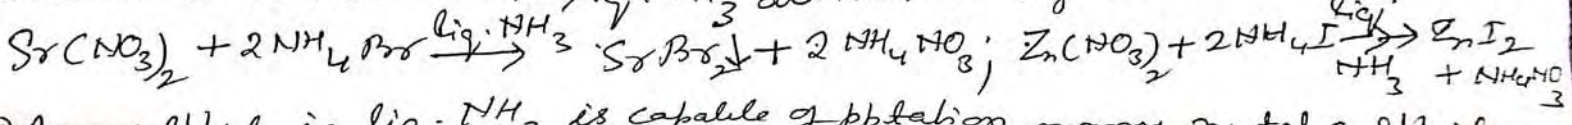 3
Sr(NO3)2 + 2NH4Br liq. NH3 → SrBr2↓ + 2NH4NO3; Zn(NO3)2 + 2NH4I liq NH3 → ZnI2 + NH4NO3
in liq. NH3 is capable of pptation